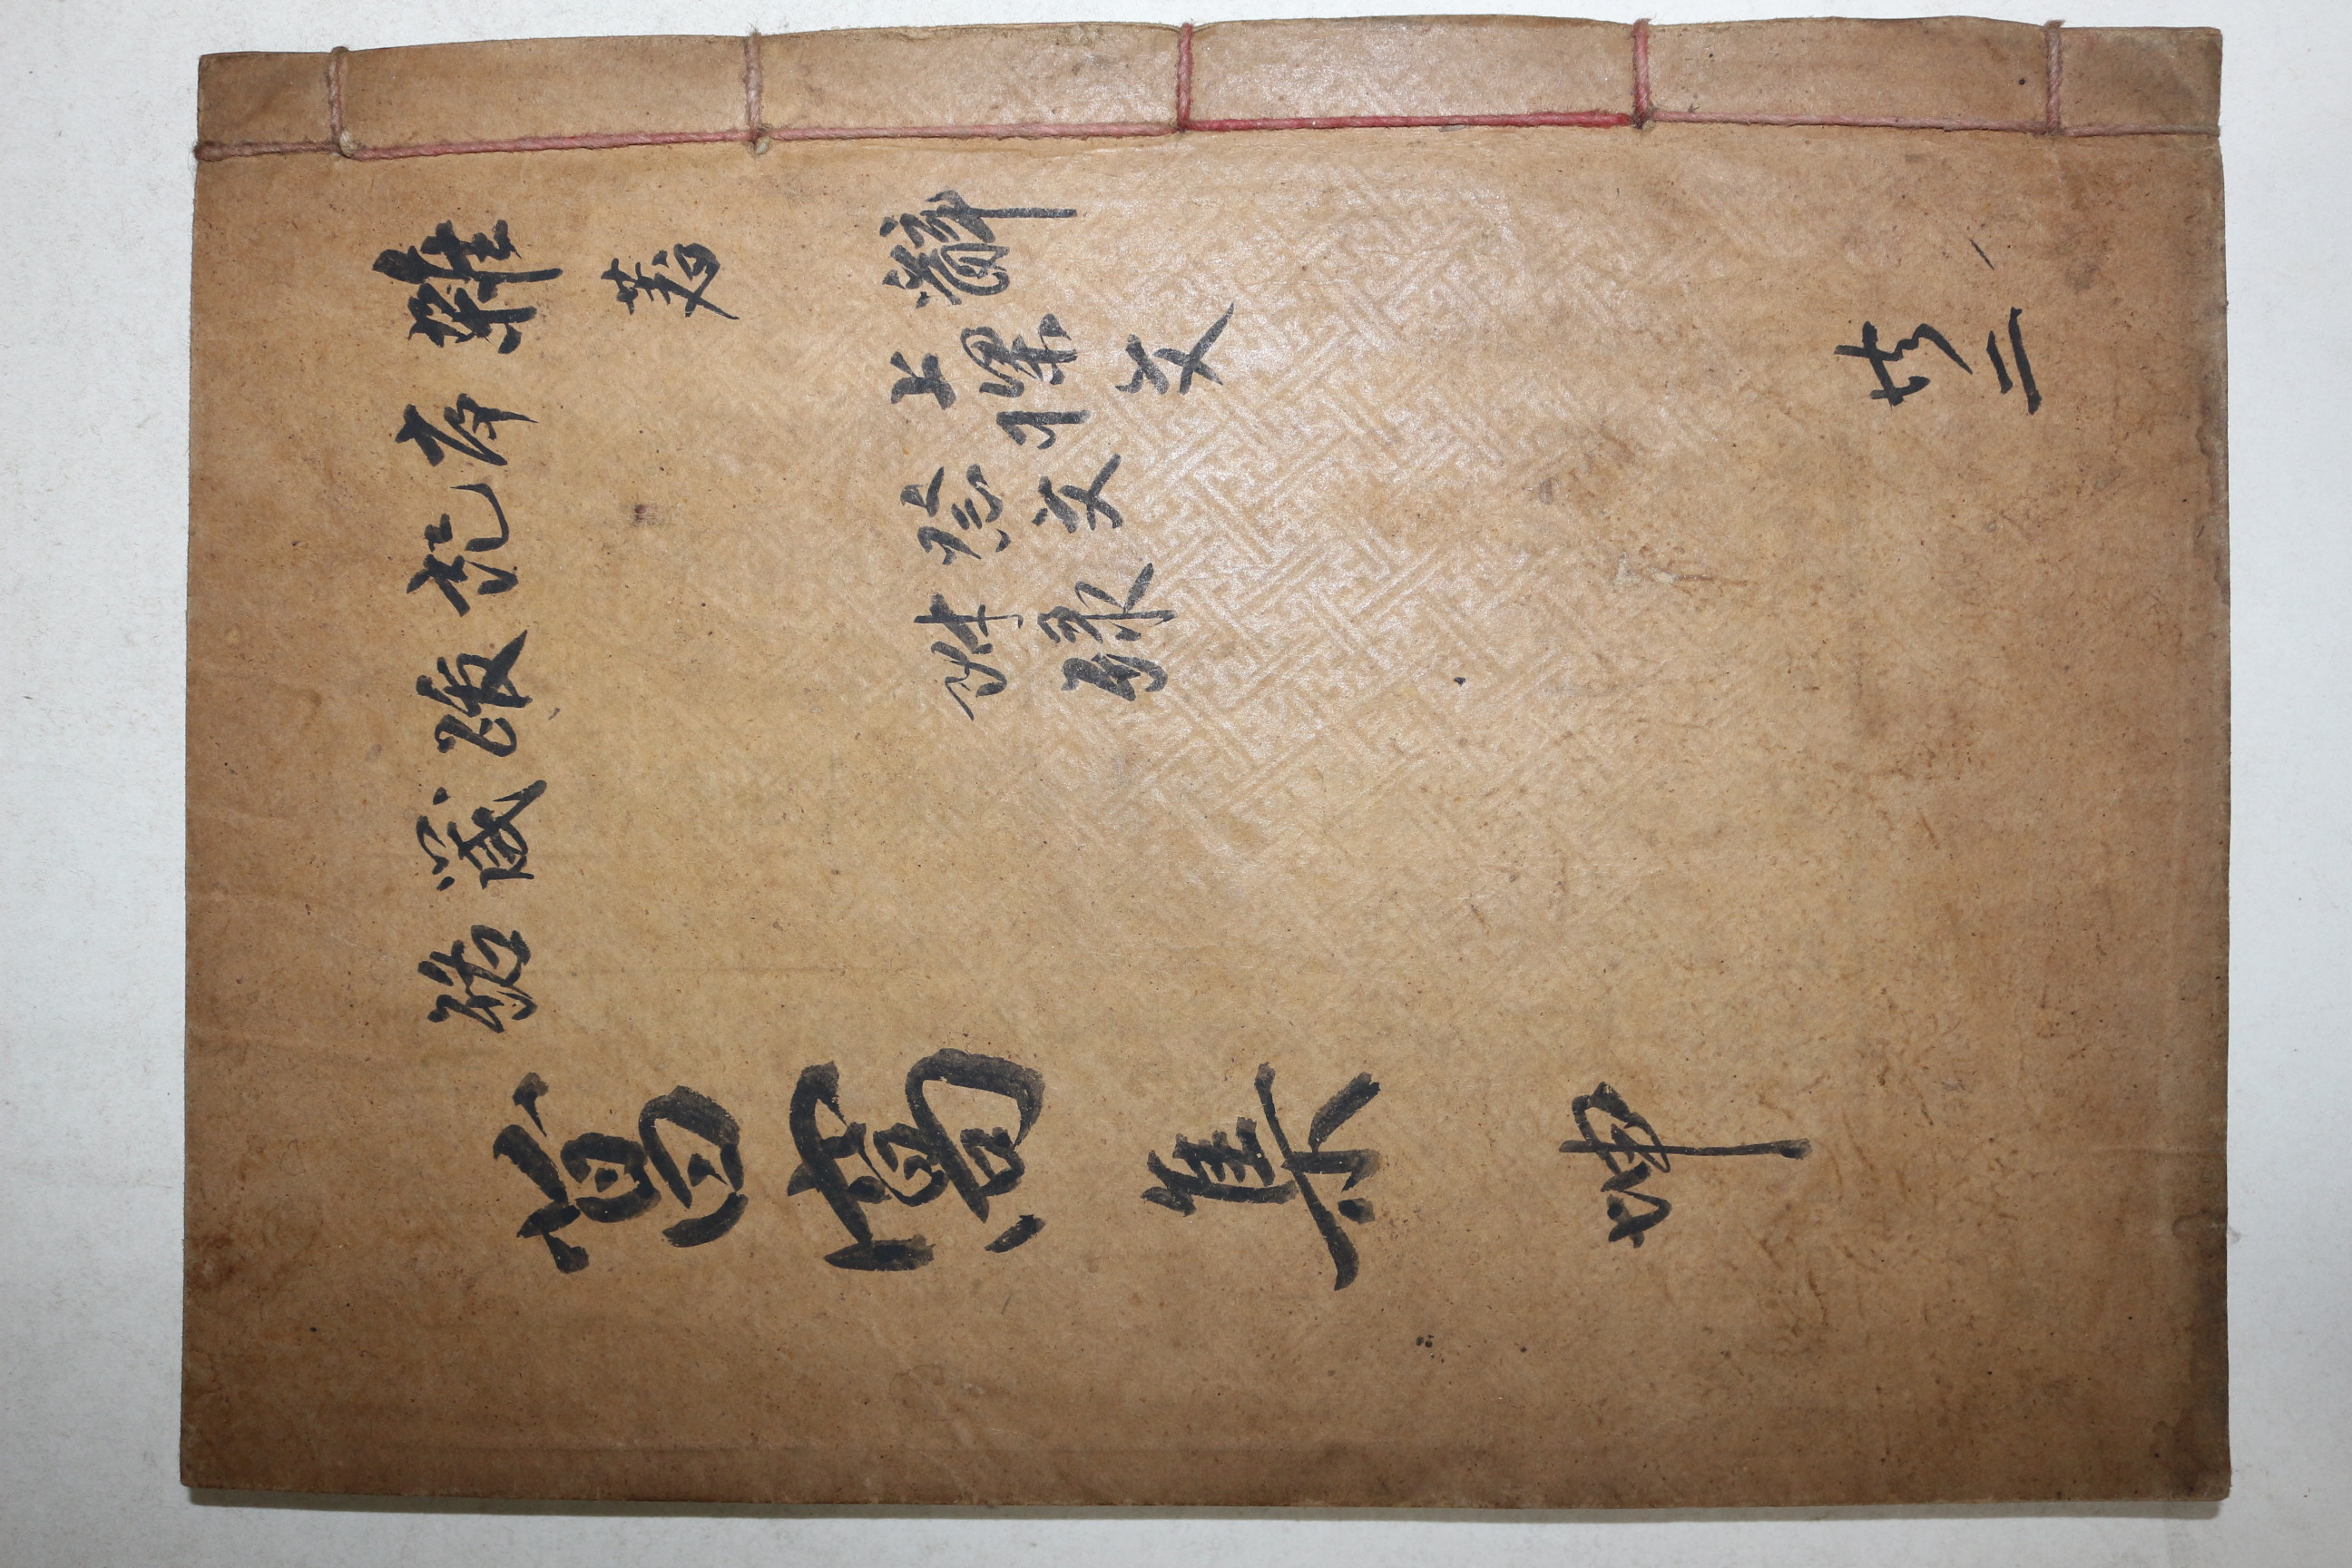 雜著
序
記
跋
箴
銘
辭
上樑文
祭文
附錄
共二
菖窩集 坤